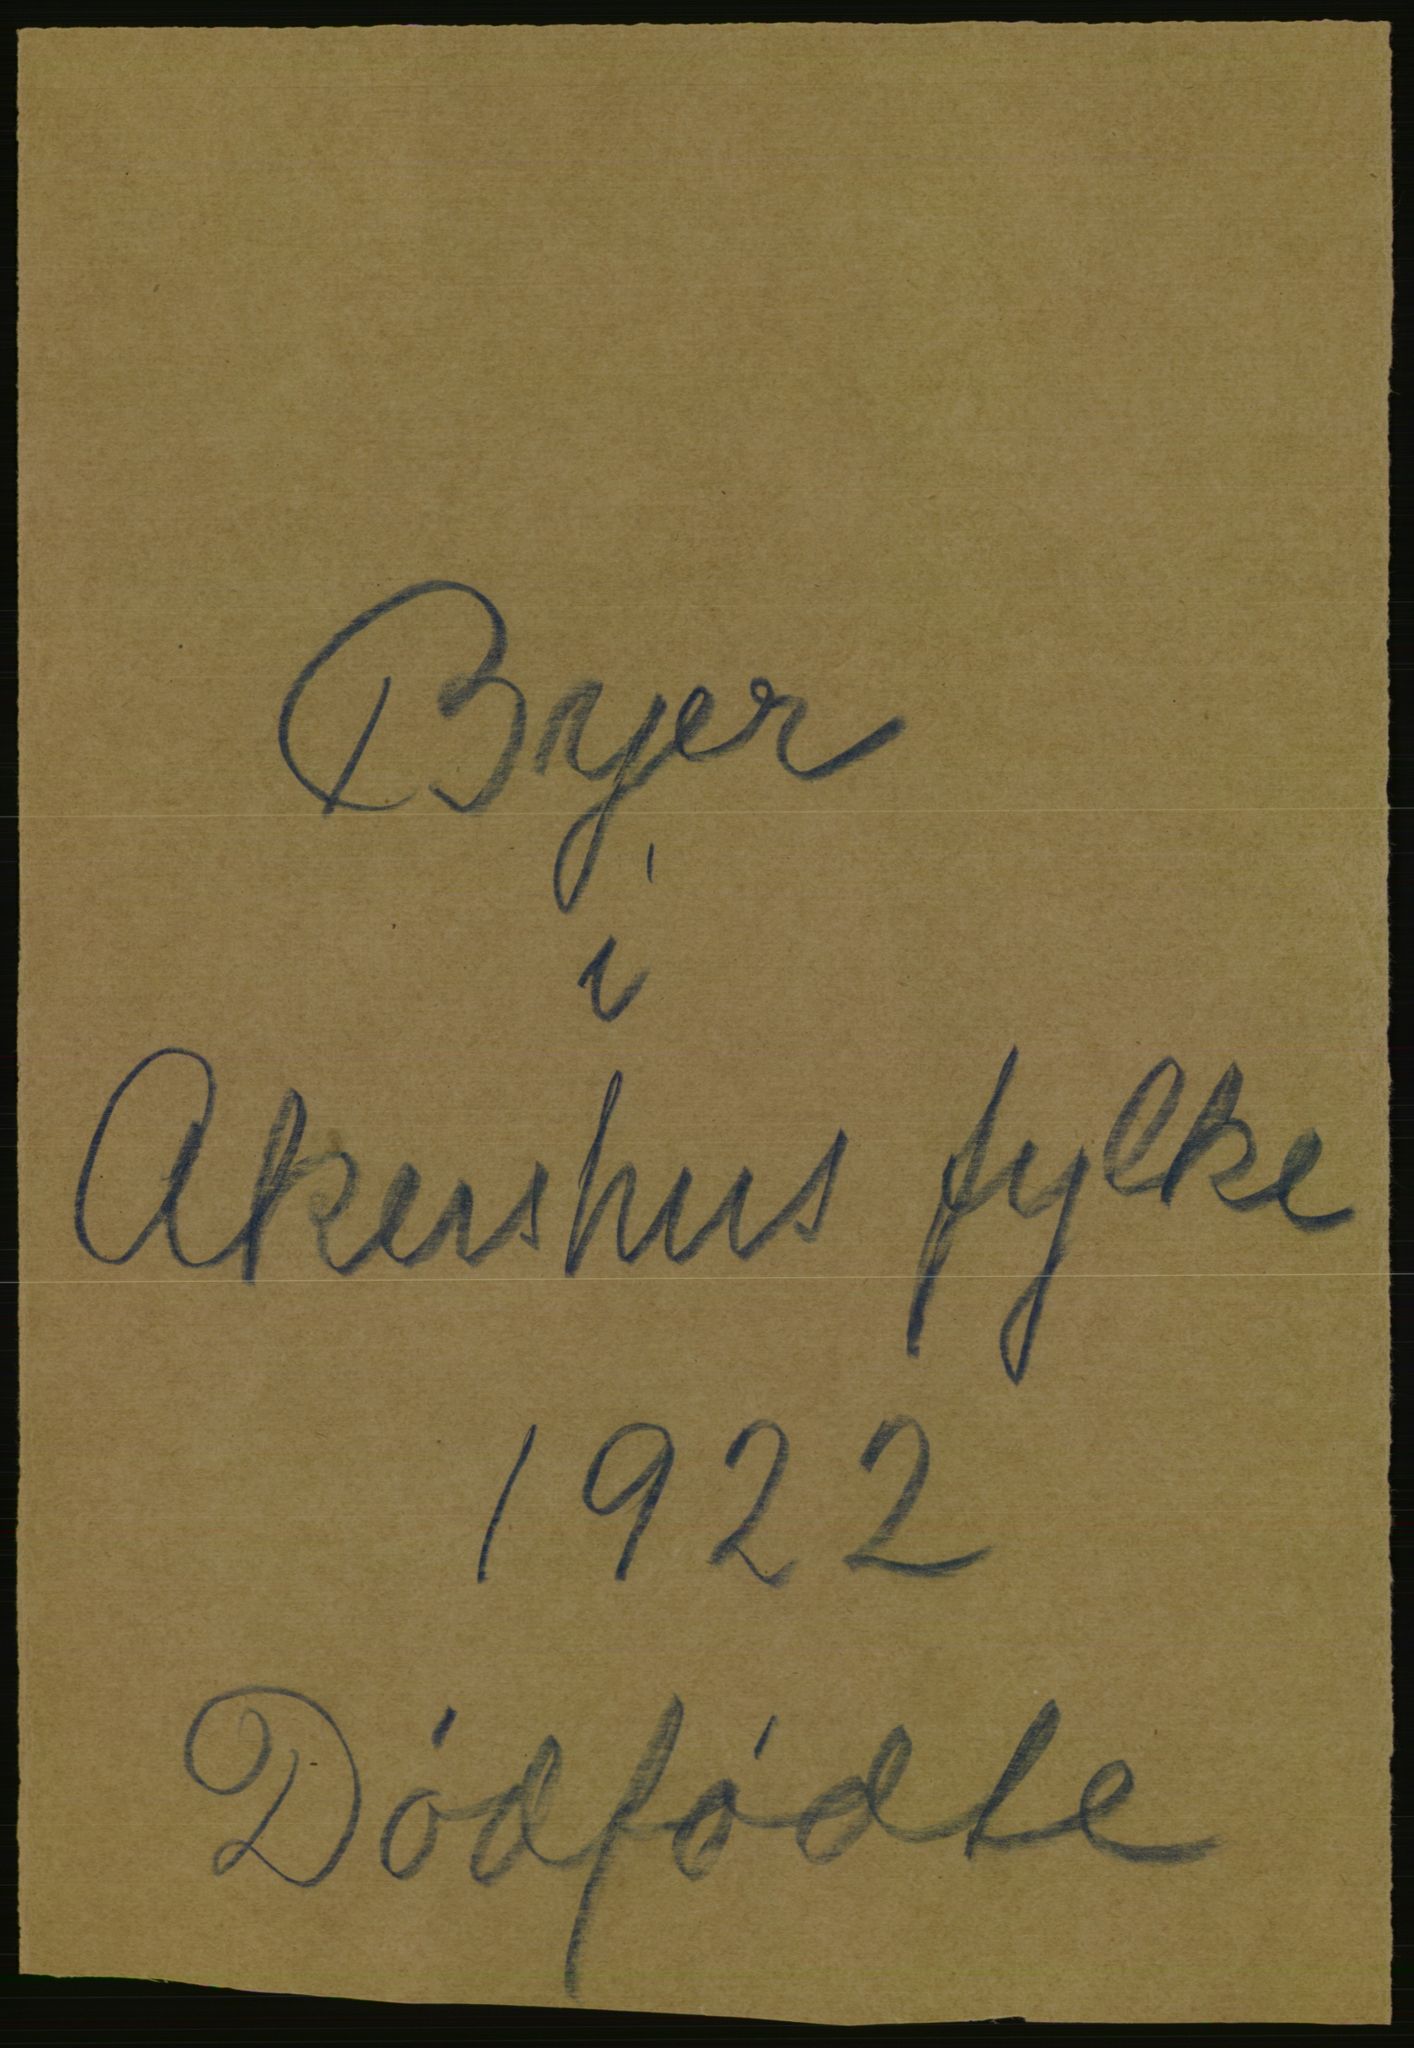 Byer
i
Akershus fylke
1922
Dødfødte